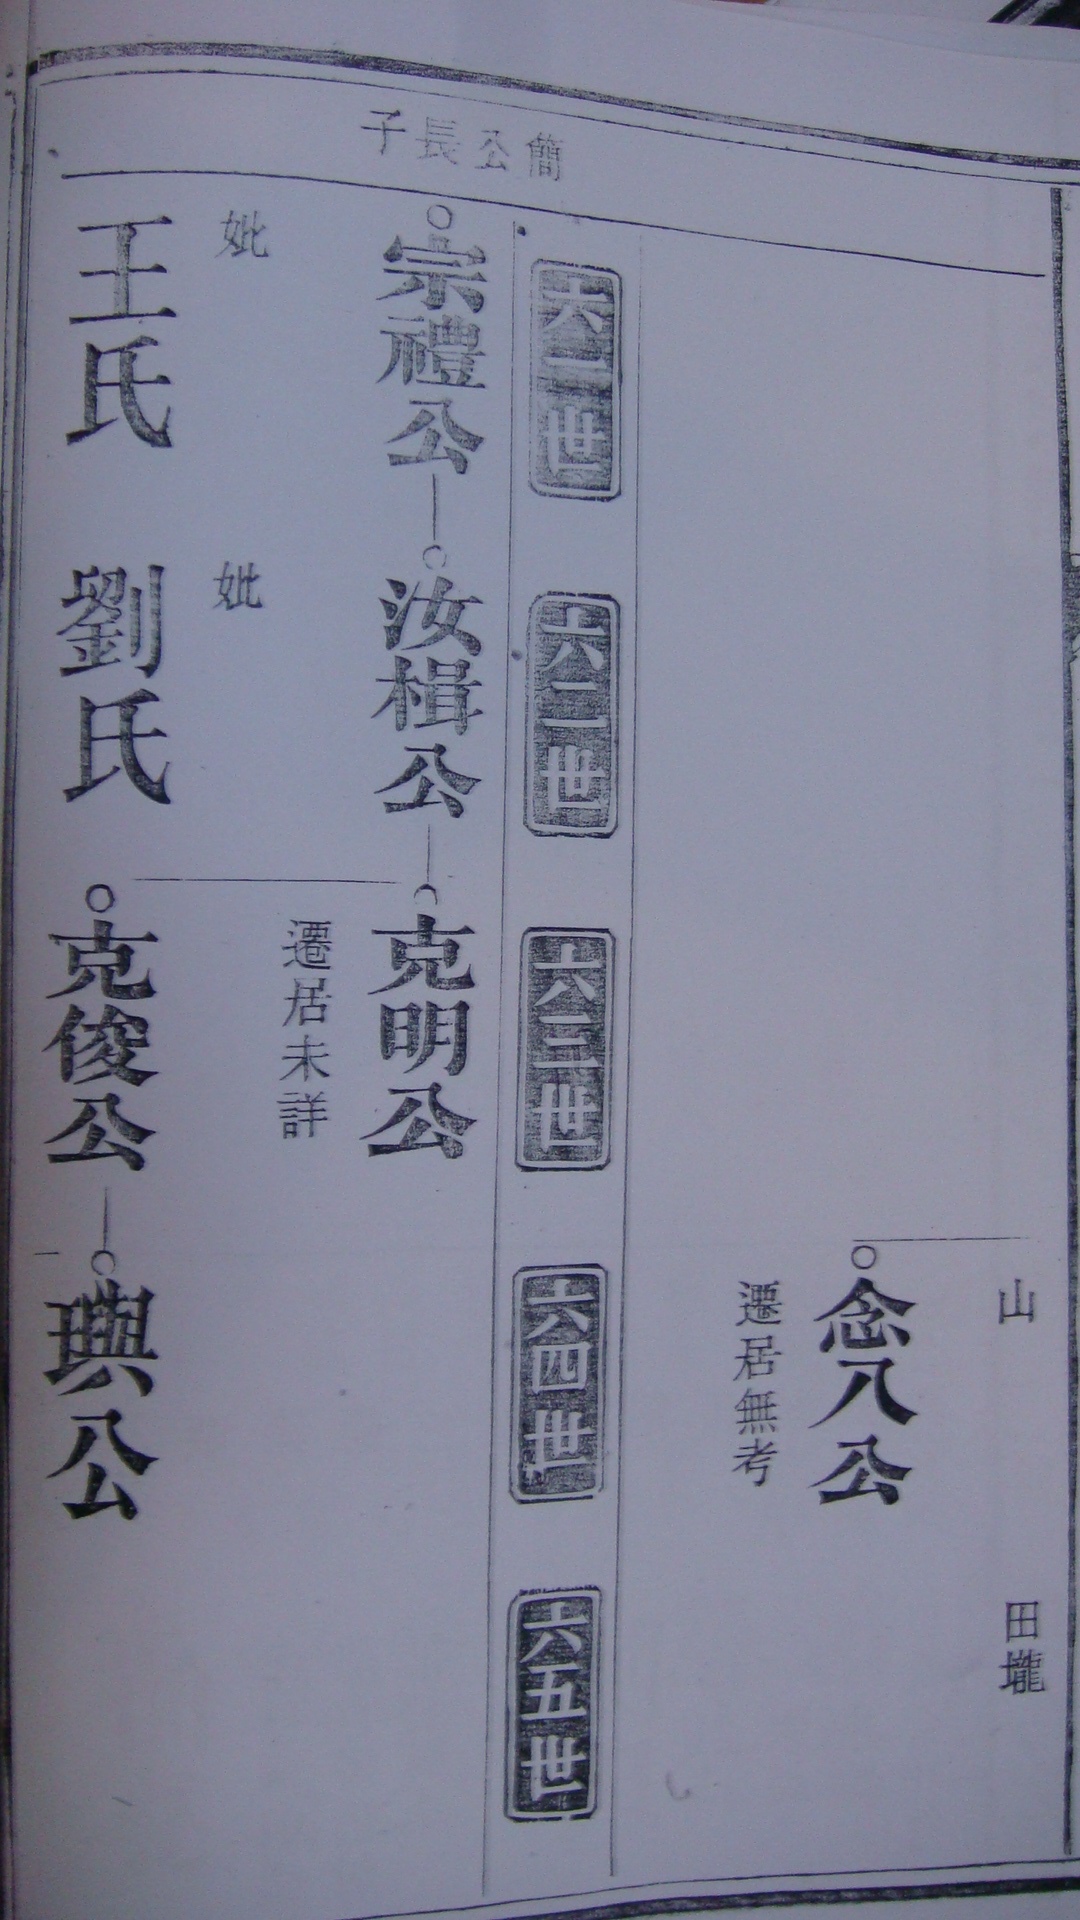 山
田壠
念八公
遷居無考
六一世
六二世
六三世
六四世
六五世
簡公長子
宗禮公
汝楫公
克明公
遷居未詳
妣
妣
王氏
劉氏
克俊公
璵公